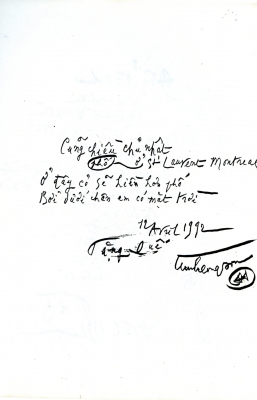 Cũng chiều chủ nhật
phố ở St Laurent Montreal
Ở đây cỏ sẽ hiền hơn phố
Bởi dưới chân em có mặt trời
12 Avril 1992
Tặng